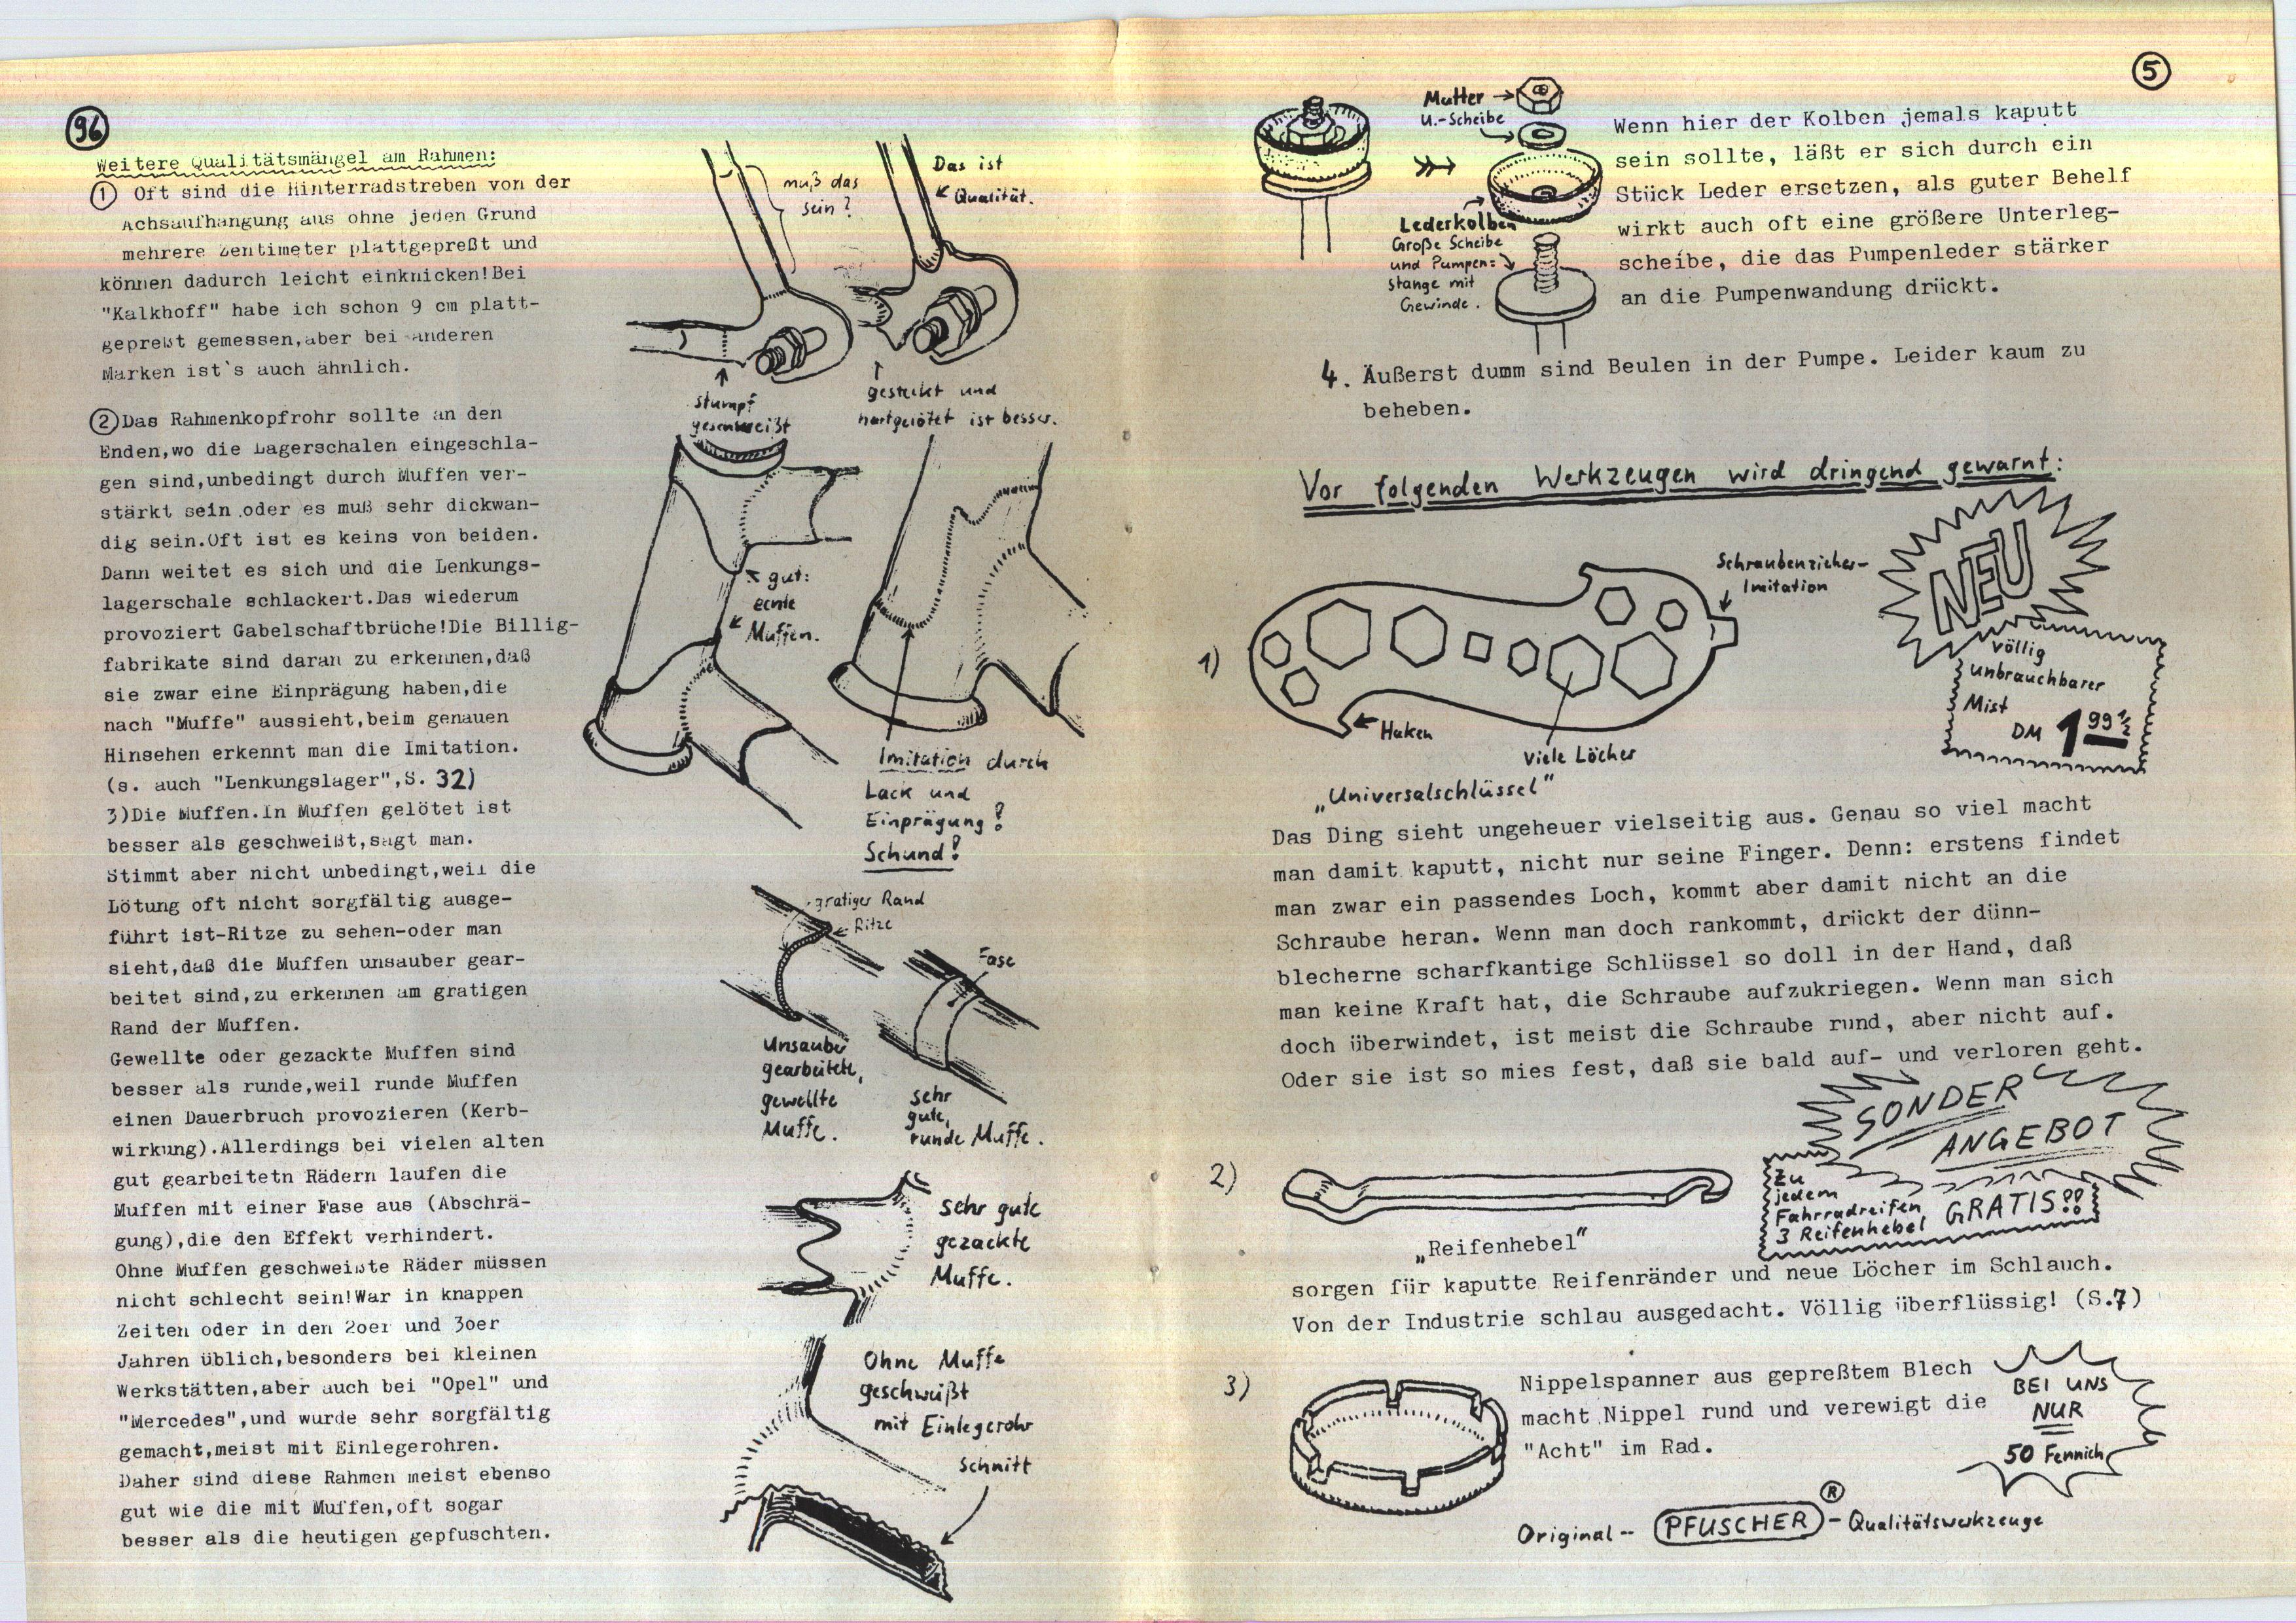 96
Weitere Qualitätsmängel am Rahmen:
1 Oft sind die Hinterradstreben von der
Achsaufhängung aus ohne jeden Grund
mehrere Zentimeter plattgepreßt und
können dadurch leicht einknicken!Bei
"Kalkhoff" habe ich schon 9 cm platt-
gepreßt gemessen,aber bei anderen
Marken ist`s auch ähnlich.
2 Das Rahmenkopfrohr sollte an den
Enden,wo die Lagerschalen eingeschla-
gen sind,unbedingt durch Muffen ver-
stärkt sein oder es muß sehr dickwan-
dig sein.Oft ist es keins von beiden.
Dann weitet es sich und die Lenkungs-
lagerschale schlackert.Das wiederum
provoziert Gabelschaftbrüche!Die Billig-
fabrikate sind daran zu erkennen,daß
sie zwar eine Einprägung haben,die
nach "Muffe" aussieht,beim genauen
Hinsehen erkennt man die Imitation.
(s. auch "Lenkungslager",S. 32)
3)Die Muffen.In Muffen gelötet ist
besser als geschweißt,sagt man.
Stimmt aber nicht unbedingt,weil die
Lötung oft nicht sorgfältig ausge-
führt ist-Ritze zu sehen-oder man
sieht,daß die Muffen unsauber gear-
beitet sind,zu erkennen am gratigen
Rand der Muffen.
Gewellte oder gezackte Muffen sind
besser als runde,weil runde Muffen
einen Dauerbruch provozieren (Kerb-
wirkung).Allerdings bei vielen alten
gut gearbeitetn Rädern laufen die
Muffen mit einer Fase aus (Abschrä-
gung),die den Effekt verhindert.
Ohne Muffen geschweißte Räder müssen
nicht schlecht sein!War in knappen
Zeiten oder in den 2oer und 3oer
Jahren üblich,besonders bei kleinen
Werkstätten,aber auch bei "Opel" und
"Mercedes",und wurde sehr sorgfältig
gemacht,meist mit Einlegerohren.
Daher sind diese Rahmen meist ebenso
gut wie die mit Muffen,oft sogar
besser als die heutigen gepfuschten.
muß das
sein?
Das ist
Qualität.
stumpf
geschweißt
gesteckt und
hartgelötet ist besser.
gut:
echte
Muffen.
Imitation durch
Lack und
Einprägung!
Schund!
gratiger Rand
Ritze
Fase
Unsauber
gearbeitete,
gewellte
Muffe.
sehr
gute,
runde Muffe.
sehr gute
gezackte
Muffe.
Ohne Muffe
geschweißt
mit Einlegerohr
Schnitt
5
Mutter
U.-Scheibe
Lederkolben
Große Scheibe
und Pumpen=
stange mit
Gewinde.
Wenn hier der Kolben jemals kaputt
sein sollte, läßt er sich durch ein
Stück Leder ersetzen, als guter Behelf
wirkt auch oft eine größere Unterleg-
scheibe, die das Pumpenleder stärker
an die Pumpenwandung drückt.
4. Äußerst dumm sind Beulen in der Pumpe. Leider kaum zu
beheben.
Vor folgenden Werkzeugen wird dringend gewarnt:
1)
Schraubenzieher-
Imitation
Haken
viele Löcher
NEU
völlig
unbrauchbarer
Mist
DM 1 99 1/2
„Universalschlüssel"
Das Ding sieht ungeheuer vielseitig aus. Genau so viel macht
man damit kaputt, nicht nur seine Finger. Denn: erstens findet
man zwar ein passendes Loch, kommt aber damit nicht an die
Schraube heran. Wenn man doch rankommt, drückt der dünn-
blecherne scharfkantige Schlüssel so doll in der Hand, daß
man keine Kraft hat, die Schraube aufzukriegen. Wenn man sich
doch überwindet, ist meist die Schraube rund, aber nicht auf.
Oder sie ist so mies fest, daß sie bald auf- und verloren geht.
2)
SONDER
ANGEBOT
Zu
jedem
Fahrradreifen
3 Reifenhebel GRATIS!!
„Reifenhebel"
sorgen für kaputte Reifenränder und neue Löcher im Schlauch.
Von der Industrie schlau ausgedacht. Völlig überflüssig! (S.7)
3)
Nippelspanner aus gepreßtem Blech
macht Nippel rund und verewigt die
"Acht" im Rad.
BEI UNS
NUR
50 Fennich
Original-- PFUSCHER ® - Qualitätswerkzeuge